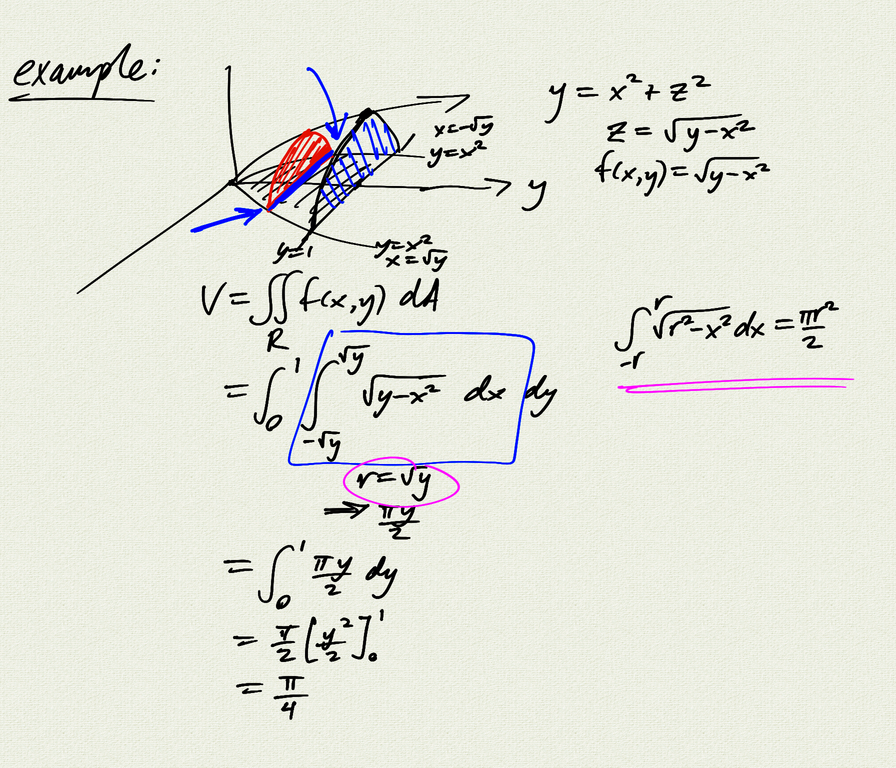 example:
y = x² + z²
z = √(y-x²)
f(x,y) = √(y-x²)
x=-√y
y=x²
y
y=1
y=x²
x=√y
V = ∬_R f(x,y) dA
= ∫₀¹ ∫_{-√y}^{√y} √(y-x²) dx dy
r=√y
⇒ πy/2
= ∫₀¹ πy/2 dy
= π/2 [y²/2]₀¹
= π/4
∫_{-r}^{r} √(r²-x²) dx = πr²/2